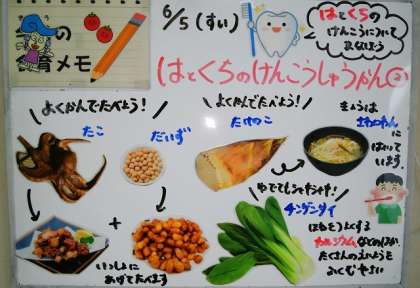 の
育メモ
6/5(すい)
はとくちの
けんこうについて
まなぼう
はとくちのけんこうしゅうかん②
よくかんでたべよう!
たこ
だいず
いっしょに
あげてたべます
よくかんでたべよう!
たけのこ
きょうは
さわにわん
に
はいって
います。
ゆでてしゃきしゃき!
チンゲンサイ
ほねをつよくする
カルシウムなどのほか、
たくさんのえいようを
ふくむやさい